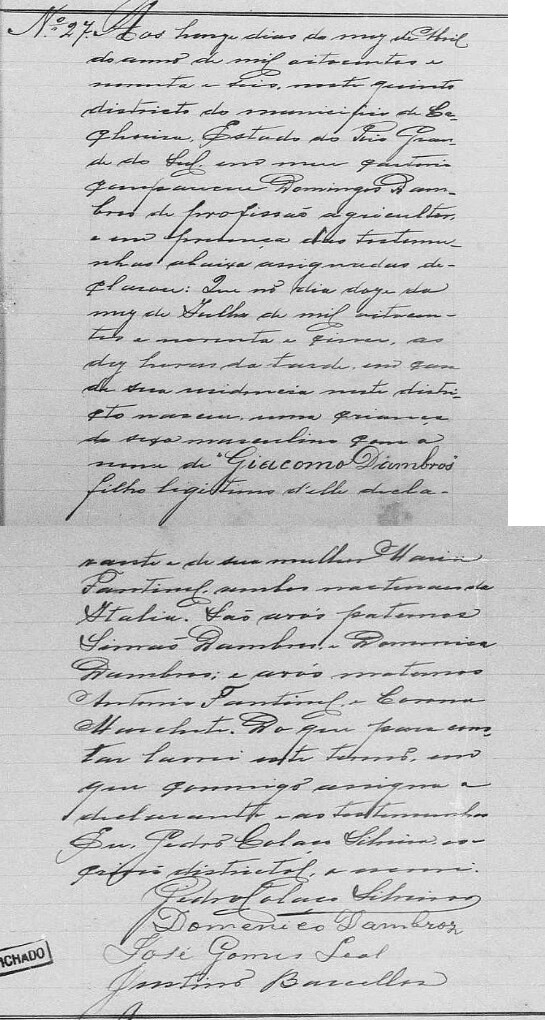 Nº 27. Aos honze dias do mez de Abril
do anno de mil oitocentos e
noventa e seis, neste quinto
districto do municipio de Ca-
choeira, Estado do Rio Gran-
de do Sul, em meu cartorio
compareceu Domingos Dam-
bros de profissão agricultor,
e em presença das testemu-
nhas abaixo assignadas de-
clarou: Que nó dia doze do
mez de Julho de mil oitocen-
tos e noventa e cinco, as
dez horas da tarde, em caza
de sua residencia neste distri-
cto nasceu uma criança
do sexo masculino com o
nome de "Giacomo Dambros"
filho legitimo d'elle decla-
rante e de sua mulher Maria
Fantinel, ambos naturaes da
Italia. São avós paternos
Simão Dambros, e Domenica
Dambros; e avós maternos
Antonio Fantinel, e Corona
Marchete. Do que para cons-
tar lavrei este termo, em
que commigo assigna o
declarante e as testemunhas
Eu, Pedro Colaço Silveira, es-
crivão districtal, o escrevi.
Pedro Colaço Silveira
Domenico Dambroz
José Gomes Leal
Justino Barcellos
ICHADO